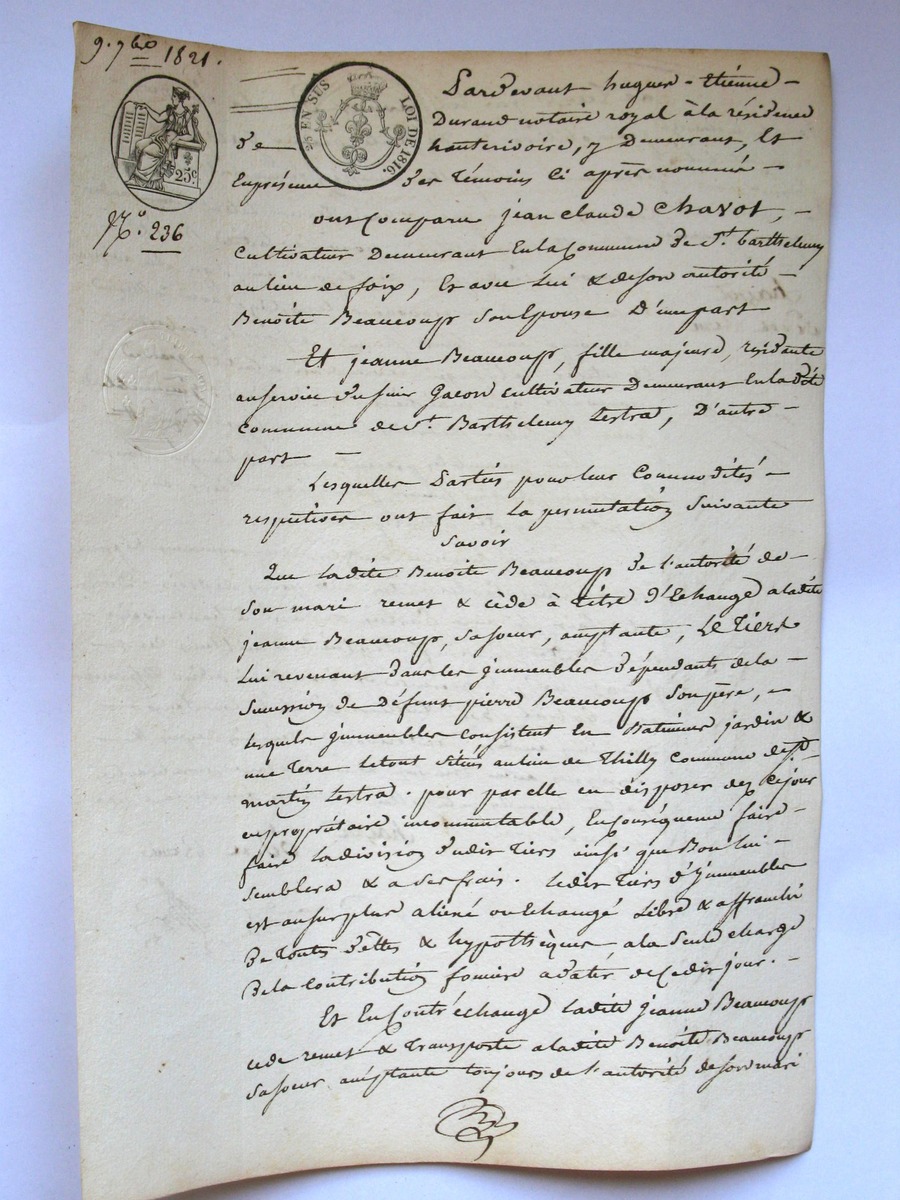 9. 9bre 1821.
25 EN SUS
LOI DE 1816
25 c.
N.º 236
Pardevant hugues-Etienne-
Durand notaire royal à la résidence
de hauterivoire, y Demeurant, Et
En présence des Témoins Ci après nommés-
ont Comparu jean claude Chavot,-
Cultivateur Demeurant En la Commune de St. barthelemy
au lieu de foix, Et avec Lui & de son autorité-
Benoite Beaucoup Son Epouse D'une part
Et jeanne Beaucoup, fille majeure, résidante
au service du sieur Gacon Cultivateur Demeurant En la dite
Commune de St. Barthelemy Lestra, D'autre-
part-
Lesquelles Parties pour leur Commodités-
respectives ont fait La permutation Suivante
Savoir
Que Ladite Benoite Beaucoup de l'autorité de-
son mari remet & cède à titre d'Echange à ladite
jeanne Beaucoup, sa soeur, acceptante, Le Tiers
Lui revenant dans les jmmeubles dépendants de la-
succession de défunt pierre Beaucoup Son père,-
lesquels jmmeubles Consistent En Batiments jardin &
une Terre Le tout Situés au lieu de Thilly Commune de St.
martin Lestra. pour par elle en disposer dez Ce jour
en propriétaire incommutable, En Conséquence faire-
faire La division dudit Tiers ainsi que Bon lui-
semblera & a Ses frais. Ledit Tiers d'jmmeubles
est au surplus aliené ou Echangé Libre & affranchi
De Toutes dettes & hypothèques a la Seule charge
De la Contribution foncière a dater de Cedit jour.-
Et En Contréchange Ladite jeanne Beaucoup
cède remet & Transporte a ladite Benoite Beaucoup
Sa soeur acceptante toujours de l'autorité de son mari